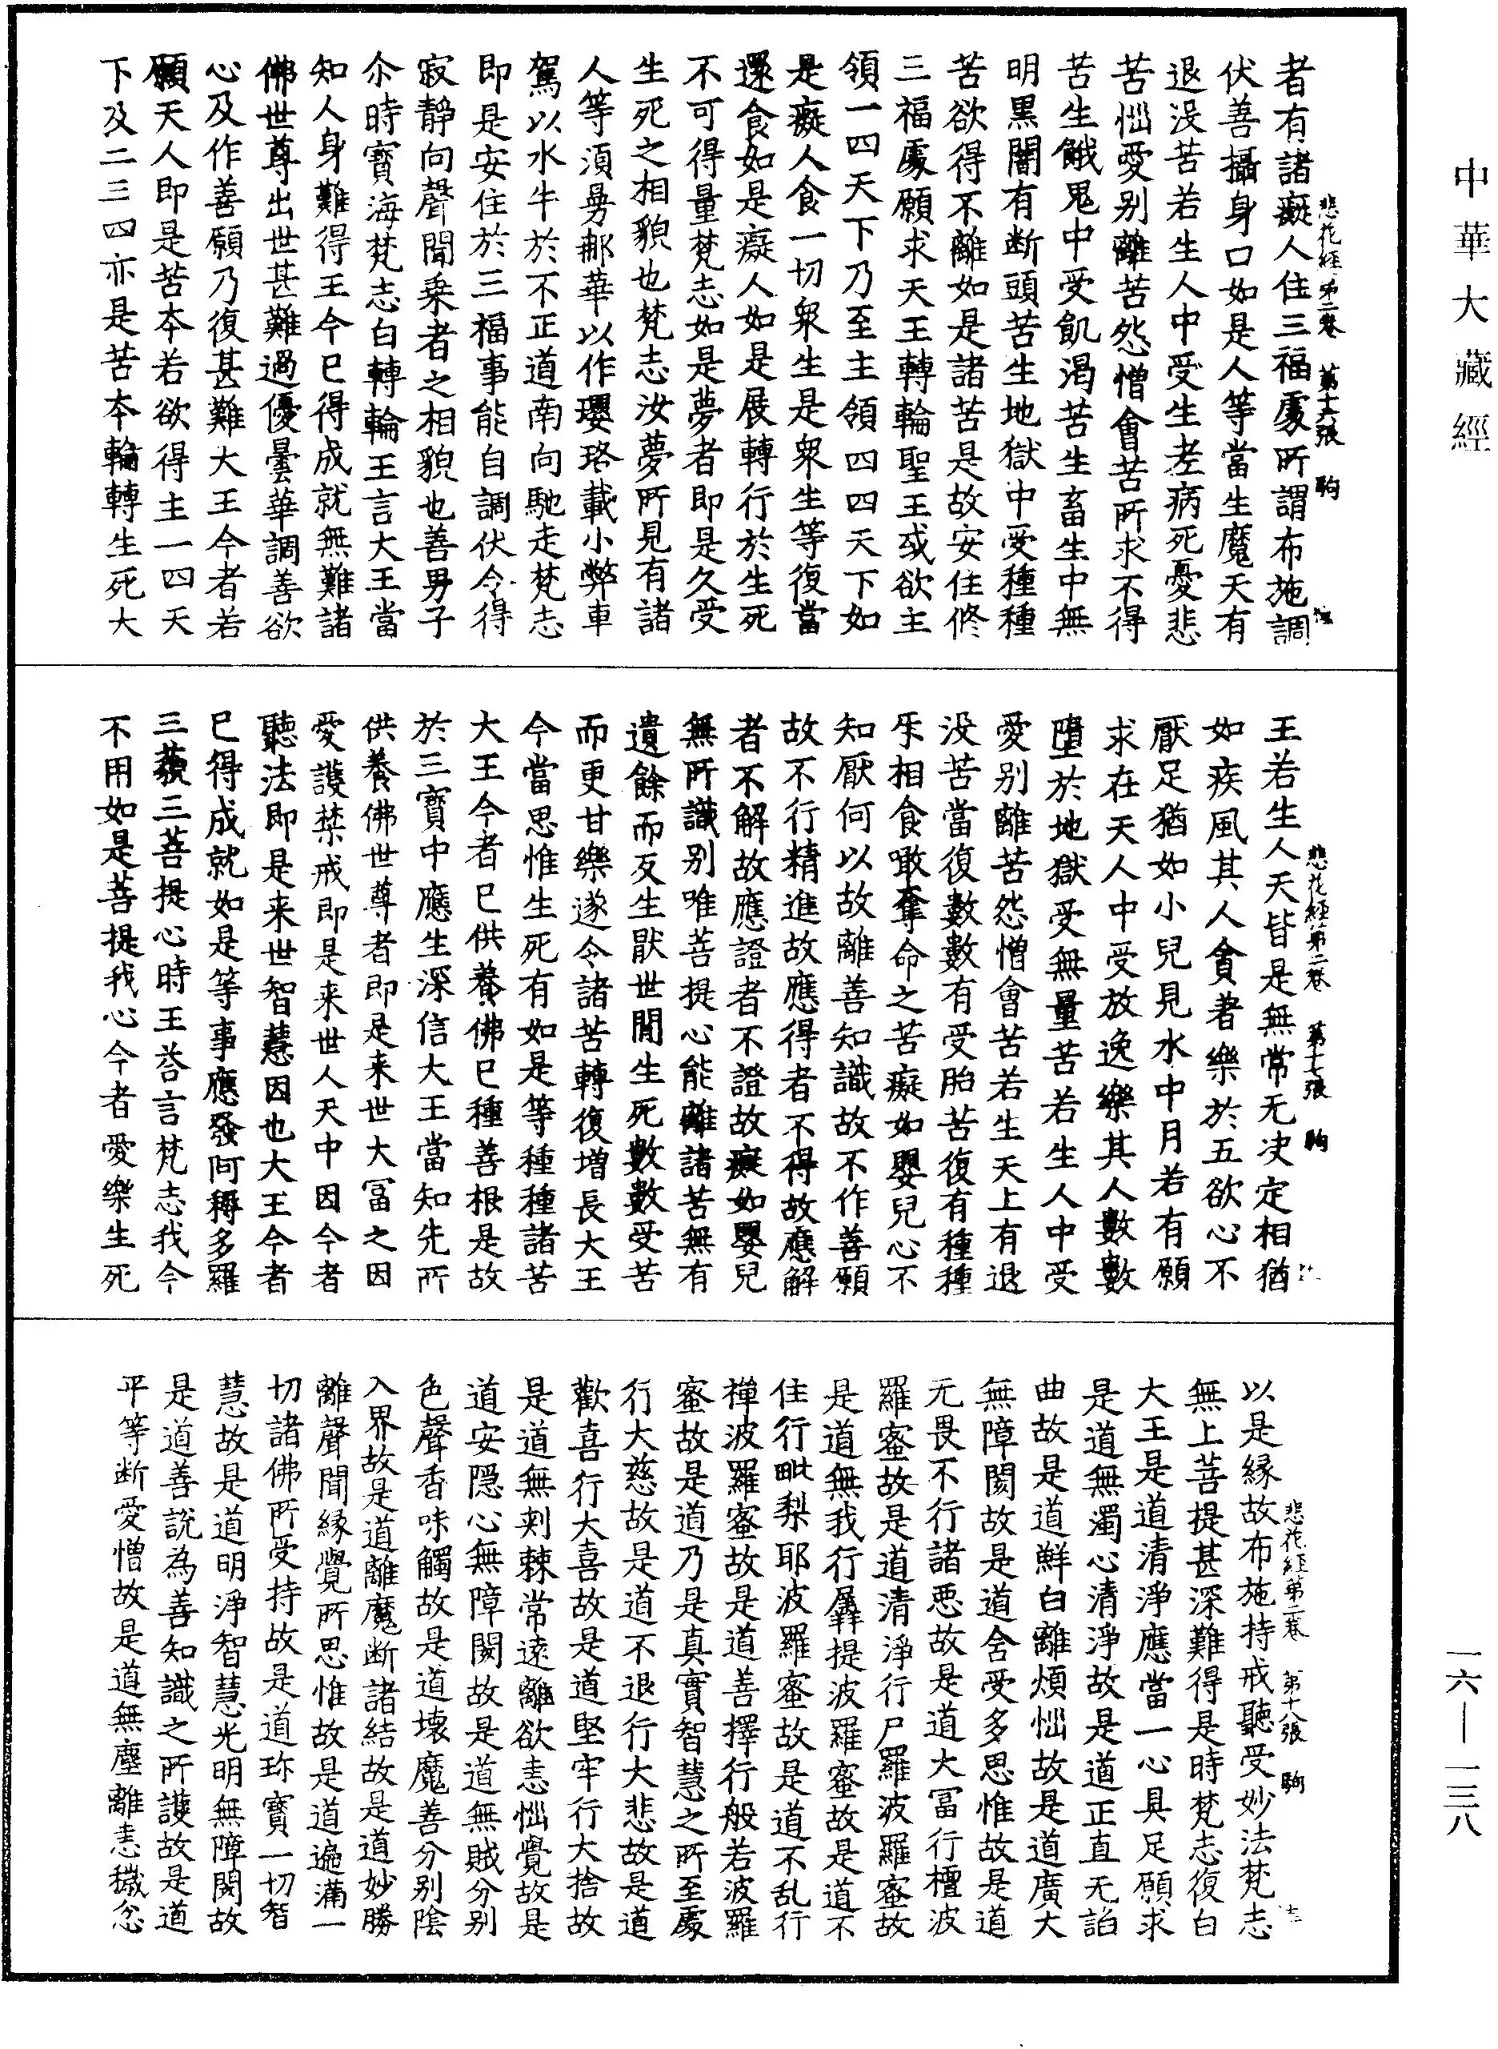 中華大藏經
悲花經第二卷 第十六張 駒
者有諸癡人住三福處所謂布施調
伏善攝身口如是人等當生魔天有
退没苦若生人中受生老病死憂悲
苦惱愛别離苦怨憎會苦所求不得
苦生餓鬼中受飢渴苦生畜生中無
明黑闇有断頭苦生地獄中受種種
苦欲得不離如是諸苦是故安住修
三福處願求天王轉輪聖王或欲主
領一四天下乃至主領四四天下如
是癡人食一切衆生是衆生等復當
還食如是癡人如是展轉行於生死
不可得量梵志如是夢者即是久受
生死之相貌也梵志汝夢所見有諸
人等須曼那華以作瓔珞載小弊車
駕以水牛於不正道南向馳走梵志
即是安住於三福事能自調伏令得
寂靜向聲聞乗者之相貌也善男子
尒時寳海梵志白轉輪王言大王當
知人身難得王今已得成就無難諸
佛世尊出世甚難過優曇華調善欲
心及作善願乃復甚難大王今者若
願天人即是苦夲若欲得主一四天
下及二三四亦是苦夲輪轉生死大
悲花經第二卷 第十七張 駒
王若生人天皆是無常无决定相猶
如疾風其人貪著樂於五欲心不
厭足猶如小兒見水中月若有願
求在天人中受放逸樂其人數數
墮於地獄受無量苦若生人中受
愛别離苦怨憎會苦若生天上有退
没苦當復數數有受胎苦復有種種
乐相食噉奪命之苦癡如嬰兒心不
知厭何以故離善知識故不作善願
故不行精進故應得者不得故應解
者不解故應證者不證故癡如嬰兒
無所識别唯菩提心能離諸苦無有
遺餘而反生猒世閒生死數數受苦
而更甘樂遂令諸苦轉復增長大王
今當思惟生死有如是等種種諸苦
大王今者已供養佛已種善根是故
於三寶中應生深信大王當知先所
供養佛世尊者即是来世大冨之因
愛護禁戒即是来世人天中因今者
聽法即是来世智慧因也大王今者
已得成就如是等事應發阿耨多羅
三藐三菩提心時王荅言梵志我今
不用如是菩提我心今者愛樂生死
悲花經第二卷 第十八張 駒
以是縁故布施持戒聽受妙法梵志
無上菩提甚深難得是時梵志復白
大王是道清淨應當一心具足願求
是道無濁心清淨故是道正直无諂
曲故是道鮮白離煩惱故是道廣大
無障閡故是道含受多思惟故是道
无畏不行諸悪故是道大冨行檀波
羅蜜故是道清淨行尸羅波羅蜜故
是道無我行羼提波羅蜜故是道不
住行毗梨耶波羅蜜故是道不乱行
禪波羅蜜故是道善擇行般若波羅
蜜故是道乃是真實智慧之所至處
行大慈故是道不退行大悲故是道
歡喜行大喜故是道堅牢行大捨故
是道無刺棘常遠離欲恚惱覺故是
道安隠心無障閡故是道無賊分别
色聲香味觸故是道壊魔善分别陰
入界故是道離魔断諸結故是道妙勝
離聲聞縁覺所思惟故是道遍滿一
切諸佛所受持故是道珎寳一切智
慧故是道明淨智慧光明無障閡故
是道善說為善知識之所護故是道
平等断愛憎故是道無塵離恚穢忿
一六—一三八